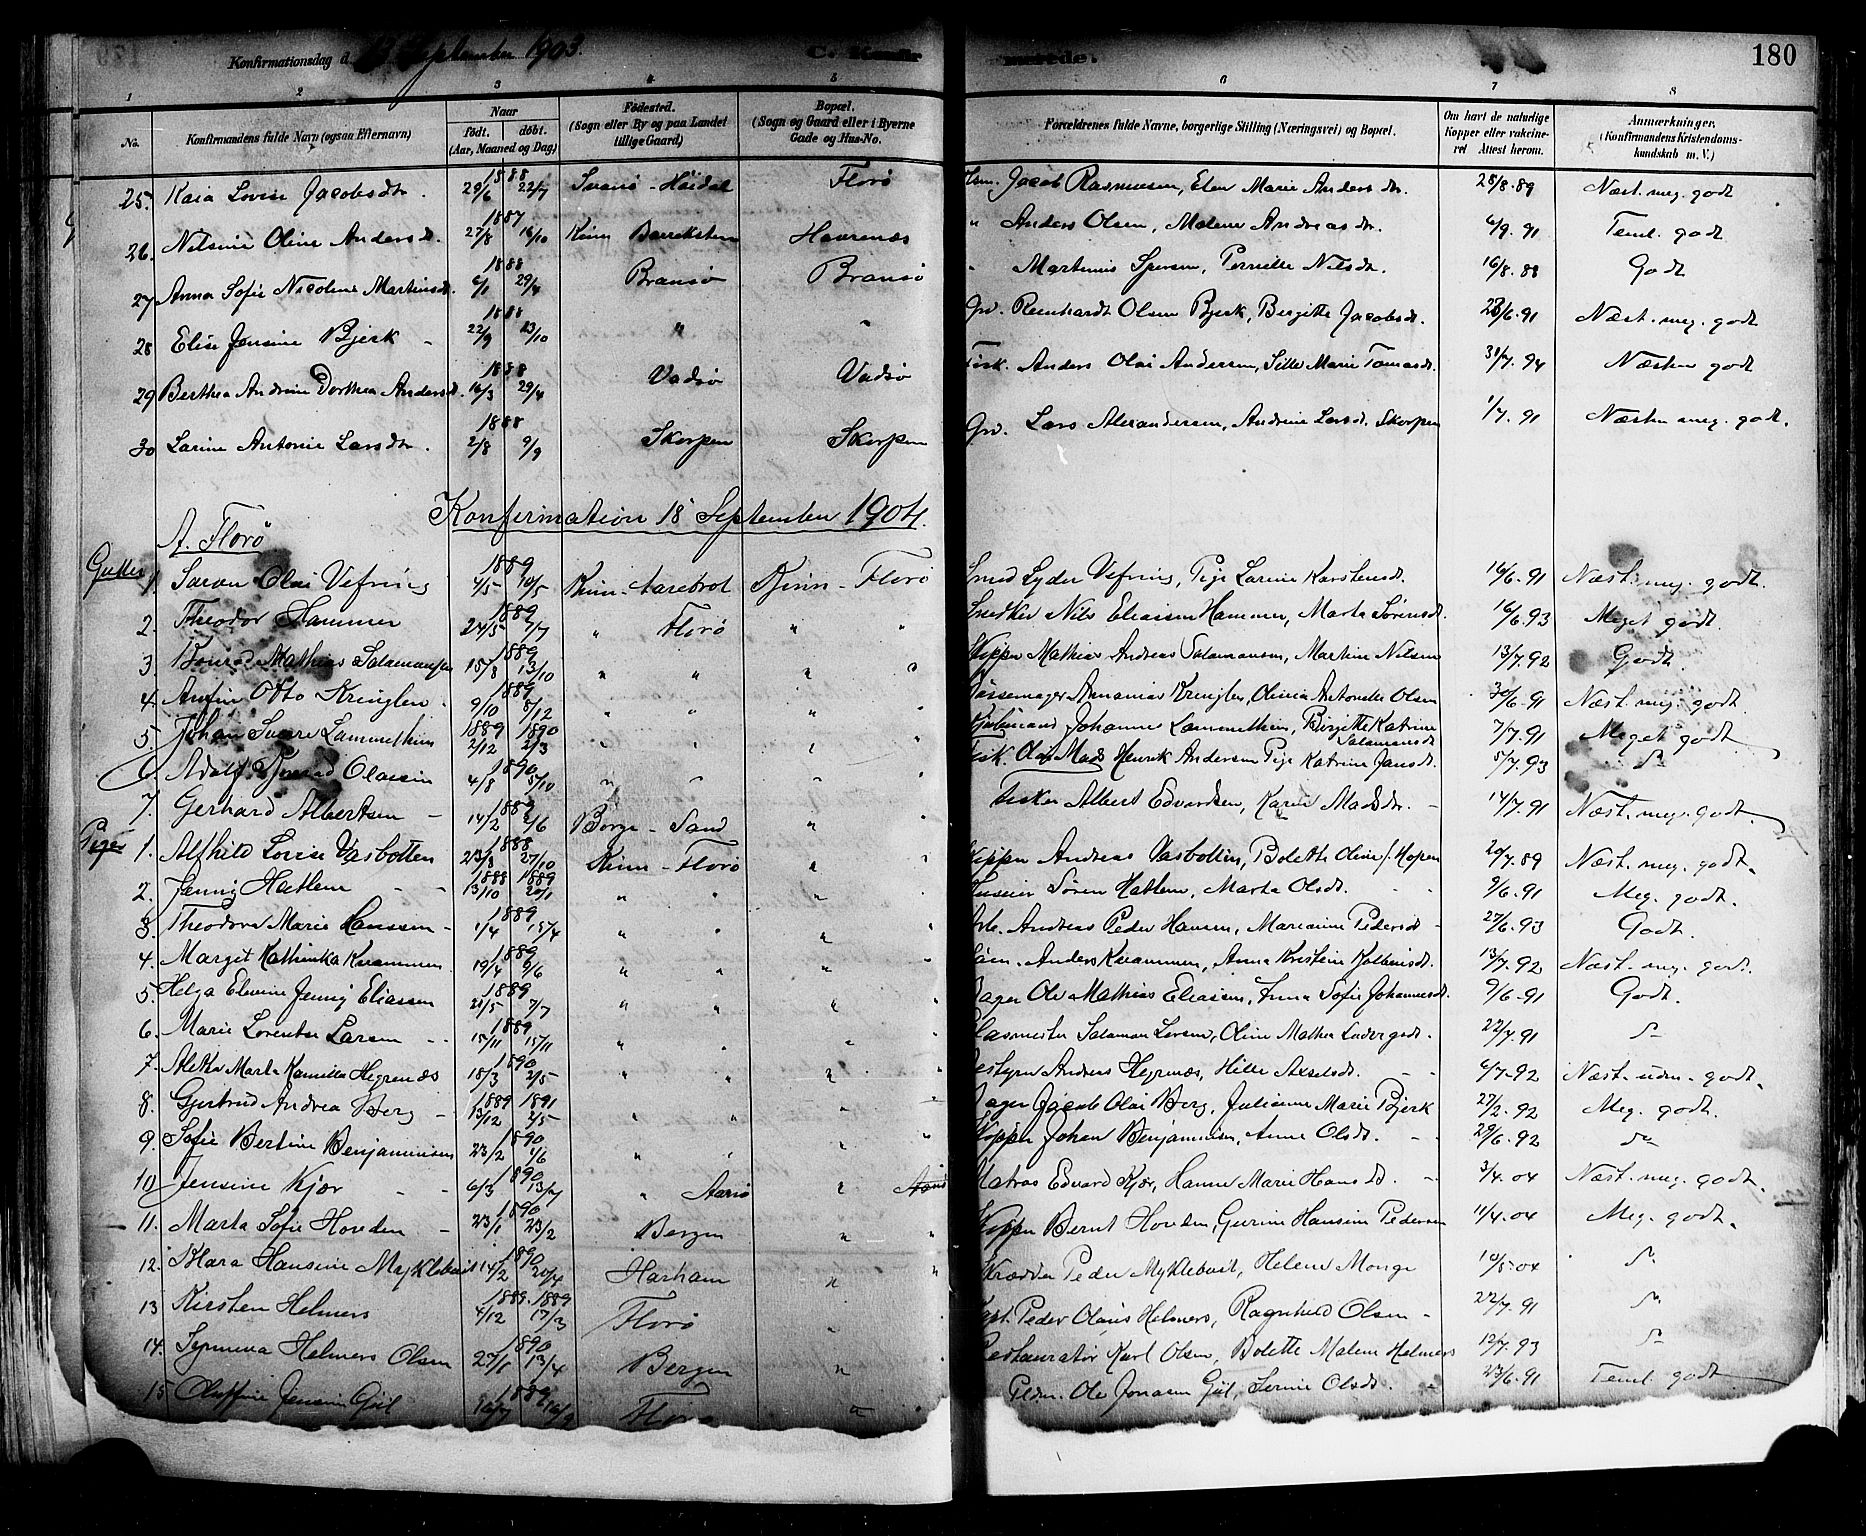 Konfirmationsdag d. 13 September 1903. C. Konfir- merede. 180
1 2 3 4 5 6 7 8
No. Konfirmandens fulde Navn (ogsaa Efternavn) Naar født. døbt. (Aar, Maaned og Dag) Fødested. (Sogn eller By og paa Landet tillige Gaard) Bopæl. (Sogn og Gaard eller i Byerne Gade og Hus-No. Forældrenes fulde Navne, borgerlige Stilling (Næringsvei) og Bopæl. Om havt de naturlige Kopper eller vakcineret Attest herom. Anmærkninger, (Konfirmandens Kristendomskundskab m. V.)
25. Kaia Lovise Jacobsdt 1888 29/6 22/7 Svanø - Høidal Florø Jacob Rasmussen, Elen Marie Andersdtr. 28/8.89 Næst. meg. godt
26. Nilsine Oline Andersd. 1887 27/8 16/10 Kinn Bareksten Havrenæs " Anders Olsen, Malene Andreasdtr. 6/9.91 Teml. godt
27 Anna Sofie Nicoline Martinsdt. 1888 6/1 29/4 Bransø Bransø Martinus Iversen, Pernille Nilsdt. 16/8.88 Godt
28 Elise Jensine Bjerk - 1888 22/9 23/10 " " Gv. Reinhardt Olsen Bjerk, Birgitte Jacobsdt. 23/6.91 Næst. meg. godt
29 Berthea Andrine Dorthea Andersd. 1888 16/3 29/4 Vadsø Vadsø Fisk. Anders Olai Andersen, Sille Marie Tomasdt. 31/7.94 Næsten godt
30 Larine Antonie Larsdtr. 1888 2/8 9/9 Skorpen Skorpen Gv. Lars Alexandersen, Andrine Larsdt. Skorpen 1/7.91 Næsten meg. godt.
Konfirmation 18 September 1904.
A. Florø
Gutter 1. Søren Olai Vefring 1889 4/5 10/5 Kinn - Aarebrot Kinn - Florø Smed Lyder Vefring, Pige Larine Karstensdt. 16/6.91 Næst. meg. godt.
2. Theodor Hammer 1889 24/5 7/7 " Florø " " Snedker Nils Eliassen Hammer, Marta Sørensdt. 16/6.93 Meget godt.
3 Konrad Mathias Salamonsen 1889 15/8 13/10 " " " " Skipper Mathias Andreas Salamonsen, Martine Nilsen 13/7.92 Godt.
4 Anfin Otto Kringlen 1889 9/10 8/12 " " " " Bøssemager Annanias Kringlen, Olivia Antonette Olsen 30/6.91 Næst. meg. godt.
5. Johan Sverre Lammethun 1889 2/12 1890 2/3 " " " " Kjøbmand Johannes Lammethun, Birgitte Katrine Salamonsdt 7/7.91 Meget godt
6. Adolf Konrad Olassen 1890 4/8 5/10 " " " " Fisk. Ole Mads Henrik Andersen Pige Katrine Jansdt. 5/7.93 do
7. Gerhard Albertsen - 1889 14/2 2/6 Borge - Sand " " Fisker Albert Edvardsen, Karen Madsdtr. - 14/7.91 Næst. meg. godt.
Piger 1. Alfhild Lovise Vasbotten 1888 23/8 27/10 Kinn - Florø " " Skipper Andreas Vasbotten, Bolette Oline f. Hopen 20/7.89 Næst. meg. godt.
2. Jenny Hatlem - - 1888 13/10 1889 20/1 " " " " Huseier Søren Hatlem, Marta Olsdt. - - 9/6.91 Meg. godt.
3. Theodora Marie Hanssen - 1889 1/4 15/4 " " " " Arb. Andreas Peder Hansen, Marianne Pedersd - 27/6.93 Godt.
4. Margit Kathinka Kvammen 1889 19/4 9/6 " " " " Anders Kvammen, Anna Kristine Kolbeinsdt. 13/7.92 Næst. meg. godt.
5. Helga Elevine Jenny Eliassen 1889 21/5 7/7 " " " " Bager Ole Mathias Eliassen, Anna Sofie Johannesdt. 9/6.91 Godt.
6. Marie Lorentse Larsen - - 1889 15/11 15/11 " " " " Glasmester Salamon Larsen, Oline Mathea 22/7.91 do
7. Aletha Marta Kamilla Hegrenæs 1890 18/3 2/5 " " " " Bestyrer Anders Hegrenæs, Hille Axelsdt. - - 6/7.92 Næst. udm. godt.
8. Gjertrud Andrea Berg - 1889 13/12 1891 2/5 " " " " Bager Jacob Olai Berg, Julianne Marie Bjerk 27/2.92 Meg. godt.
9. Sofie Bertine Benjaminsen 1890 23/2 4/6 " " " " Skipper Johan Benjaminsen, Anne Olsdt. - - 29/6.92 do
10 Jensine Kjær - - 1890 6/3 13/7 " Aarø " Matros Edvard Kjær, Hanne Marie Hansd. - 3/4.04 Næst. meg. godt.
11. Marta Sofie Hovden - 1890 23/1 23/2 Bergen " " Skipper Bernt Hovden, Gurine Hansine Pedersen 11/4.04 Meg. godt.
12. Klara Hansine Myklebust 1890 14/2 20/4 Harham " " Skrædder Peder Myklebust, Helene Monge 10/5.04 do
13 Kirsten Helmers 1889. 4/12 1889 17/3 Florø " Kapt. Peder Olaus Helmers, Ragnhild Olsen - 22/7.91 do
14. Synneva Helmers Olsen 1890 27/1 13/4 Bergen " Restauratør Karl Olsen, Bolette Malene Helmers 12/7.93 do
15 Oluffine Jensine Gøil 1889 16/7 16/9 Florø " Ole Jonasen Gøil, Serine Olsdt. 23/6.91 Teml. godt